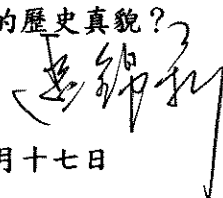 的歷史真貌？
錦利
月十七日